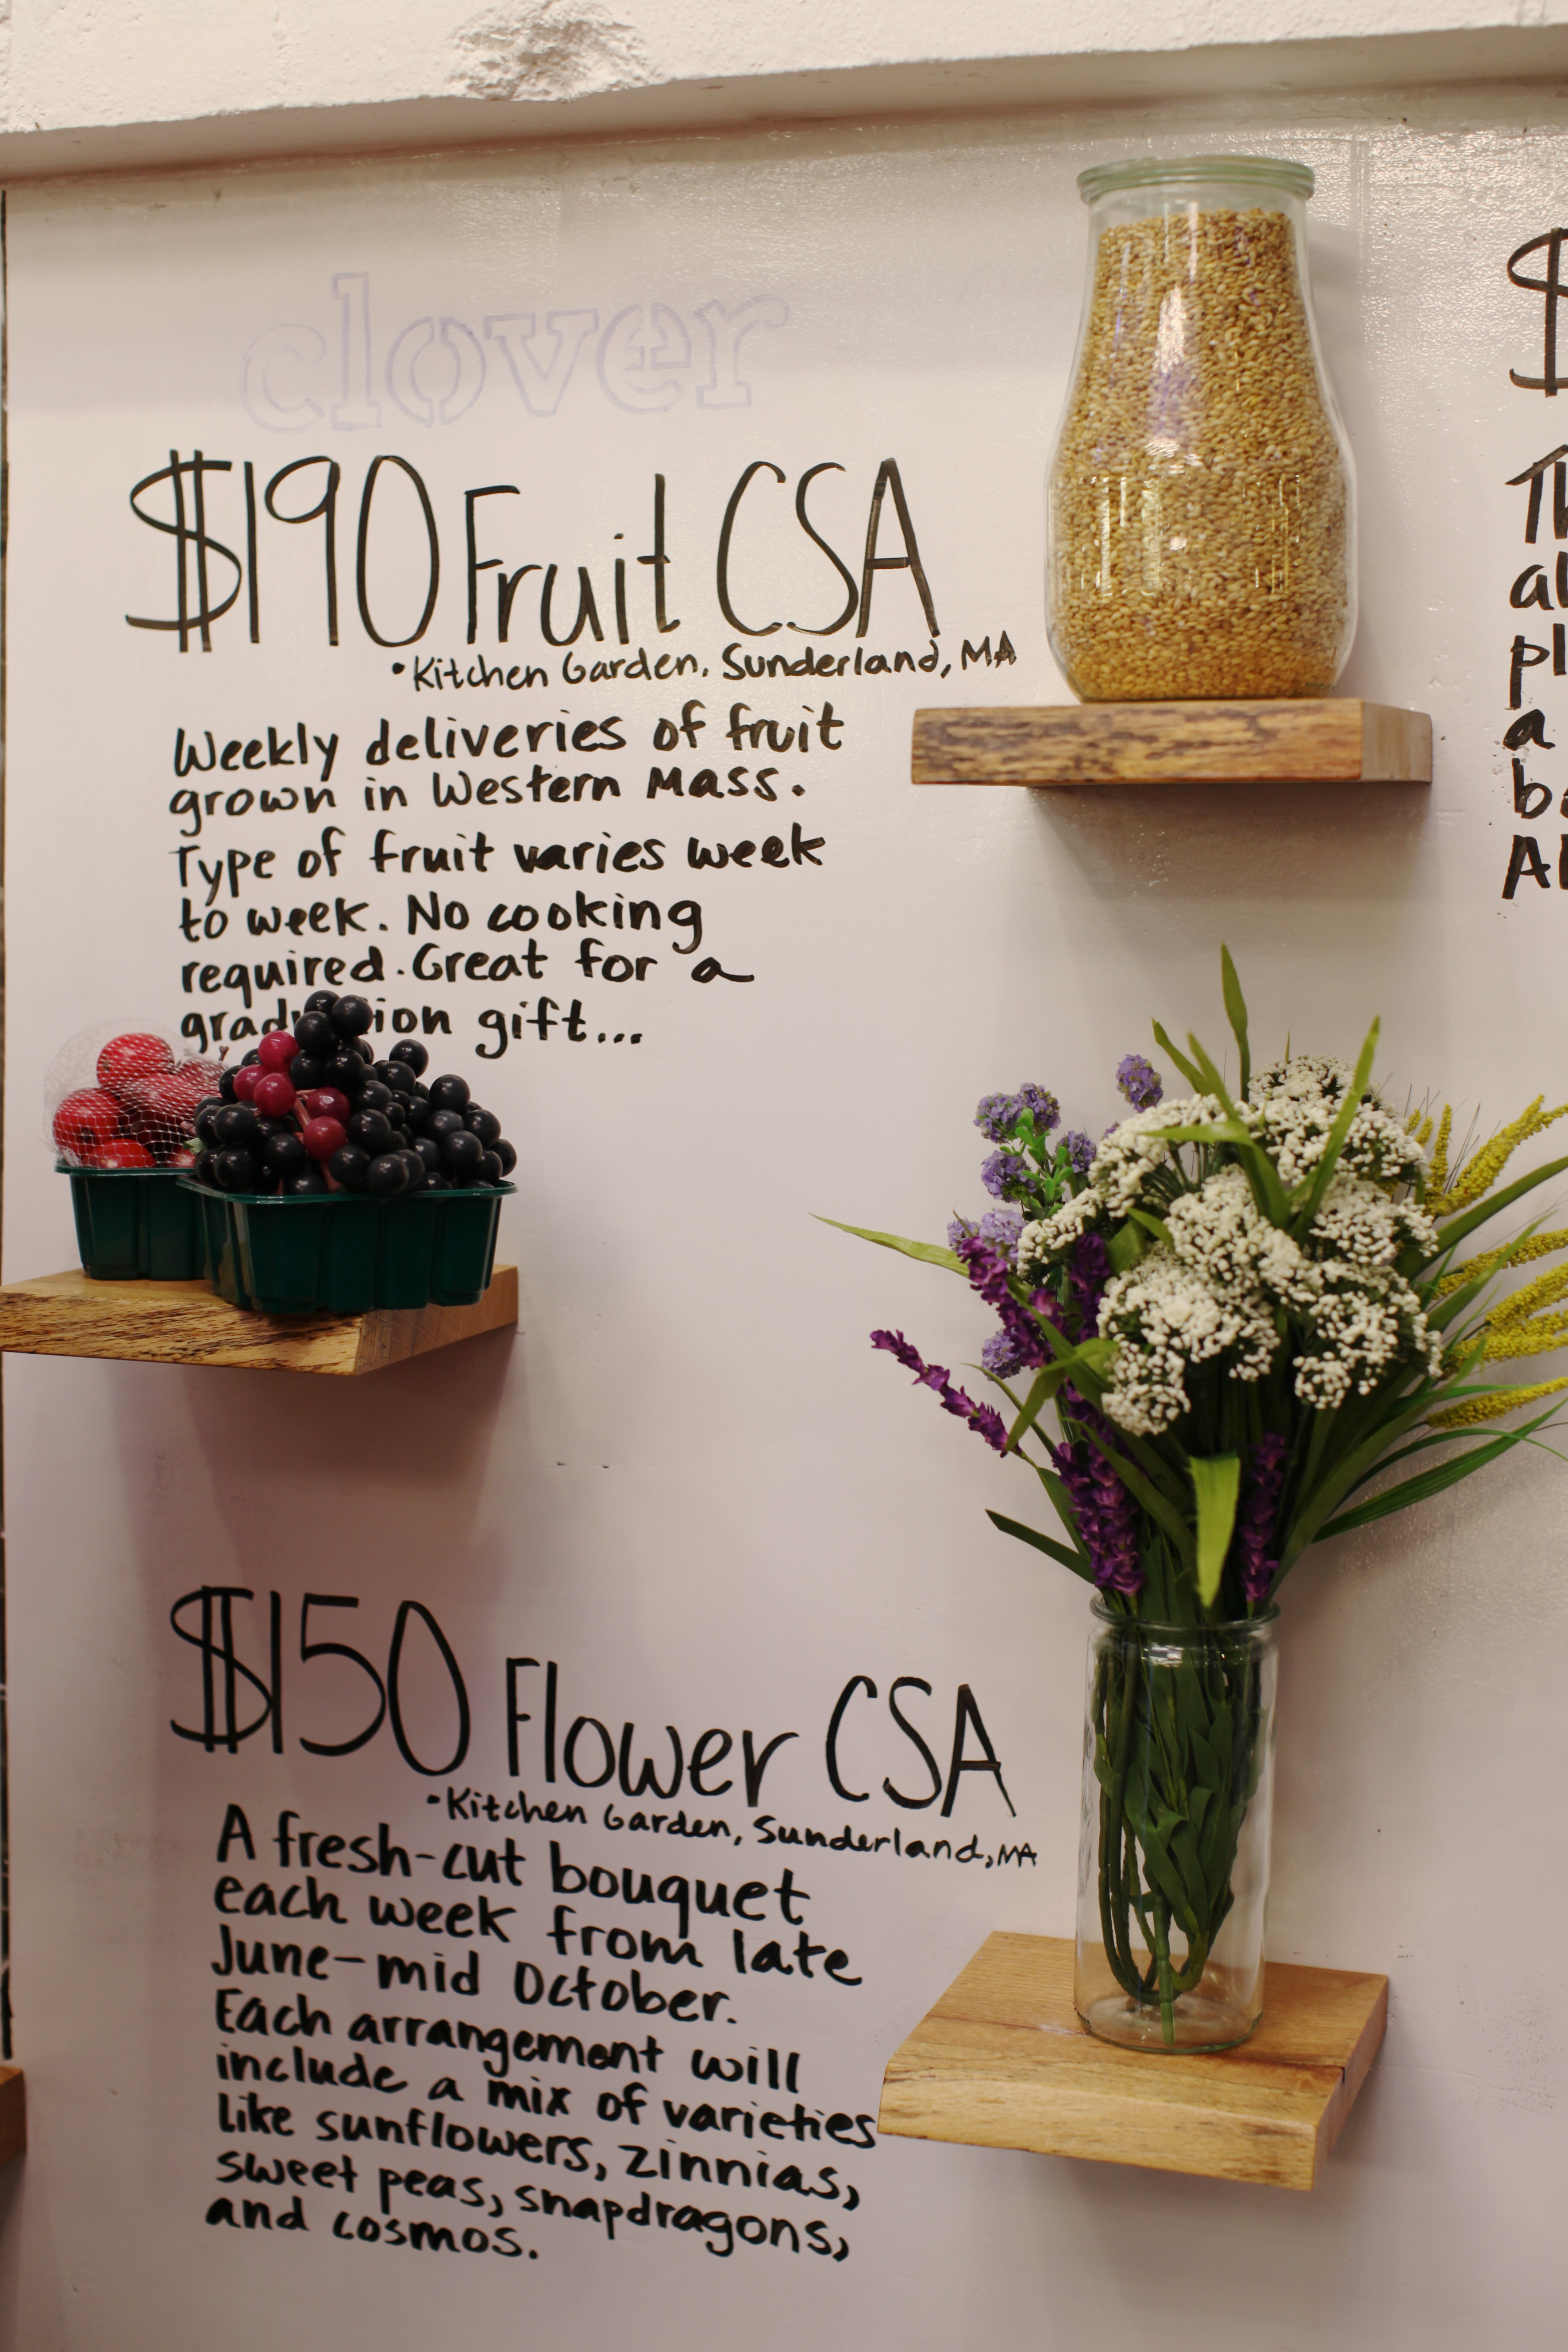 clover
$190 Fruit CSA
•Kitchen Garden, Sunderland, MA
Weekly deliveries of fruit
grown in Western Mass.
Type of fruit varies week
to week. No cooking
required. Great for a
gift...
$150 Flower CSA
•Kitchen Garden, Sunderland, MA
A fresh-cut bouquet
each week from late
June-mid October.
Each arrangement will
include a mix of varieties
like sunflowers, zinnias,
sweet peas, snapdragons,
and cosmos.
$
a